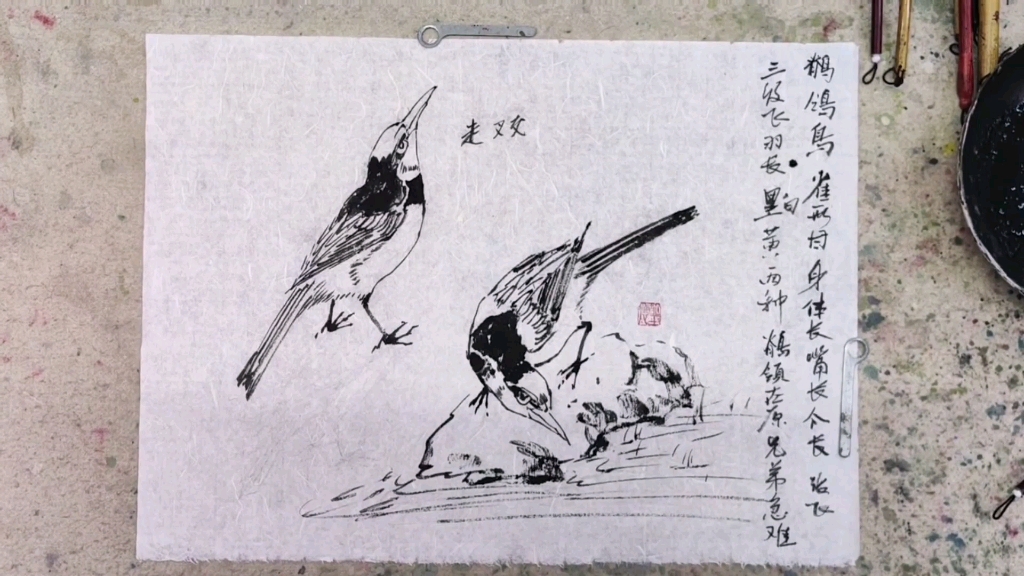 鹡鸰鸟 雀形目 身体长嘴长
三级飞羽长 黑白 黄 两种 鹡领在原 兄弟急难
走